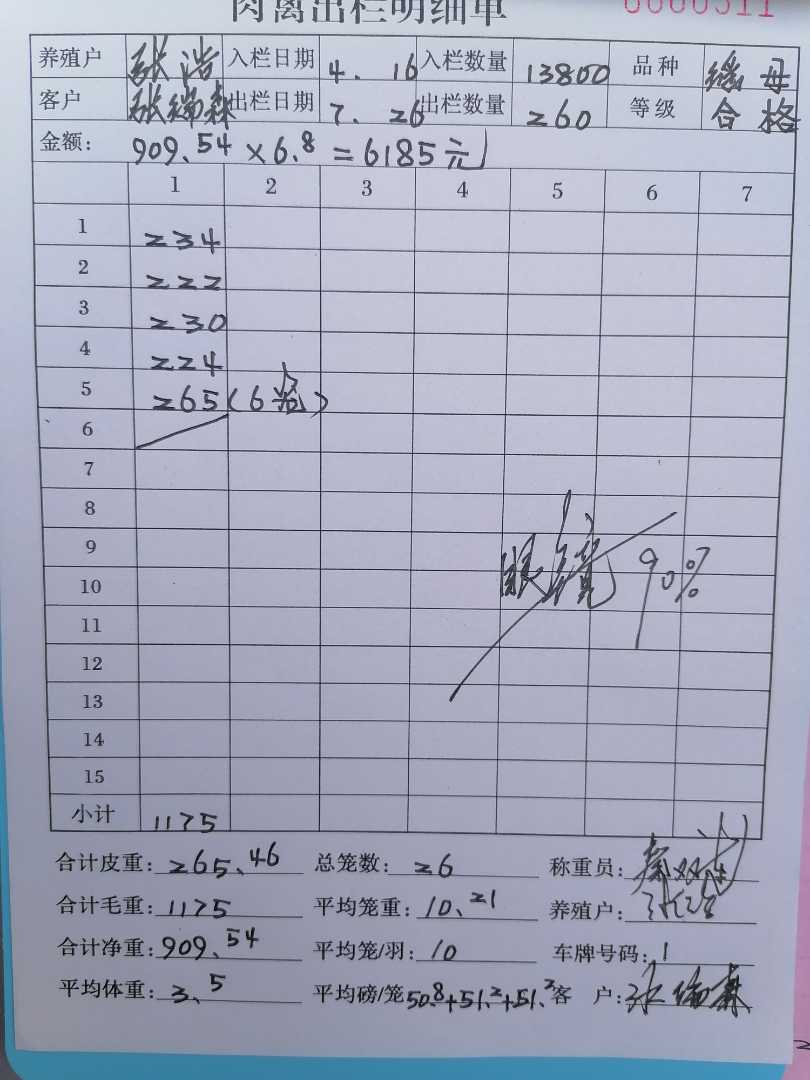 肉禽出栏明细单 0000511
养殖户 张浩 入栏日期 4.16 入栏数量 13800 品种 母
客户 张瑞森 出栏日期 7.26 出栏数量 260 等级 合格
金额: 909.54×6.8=6185元
1 2 3 4 5 6 7
1 234
2 222
3 230
4 224
5 265(6笼)
6
7
8
9 眼镜90%
10
11
12
13
14
15
小计 1175
合计皮重: 265.46 总笼数: 26 称重员:
合计毛重: 1175 平均笼重: 10.21 养殖户: 张浩
合计净重: 909.54 平均笼/羽: 10 车牌号码: 1
平均体重: 3.5 平均磅/笼 50.8+51.2+51.3 客 户: 张瑞森